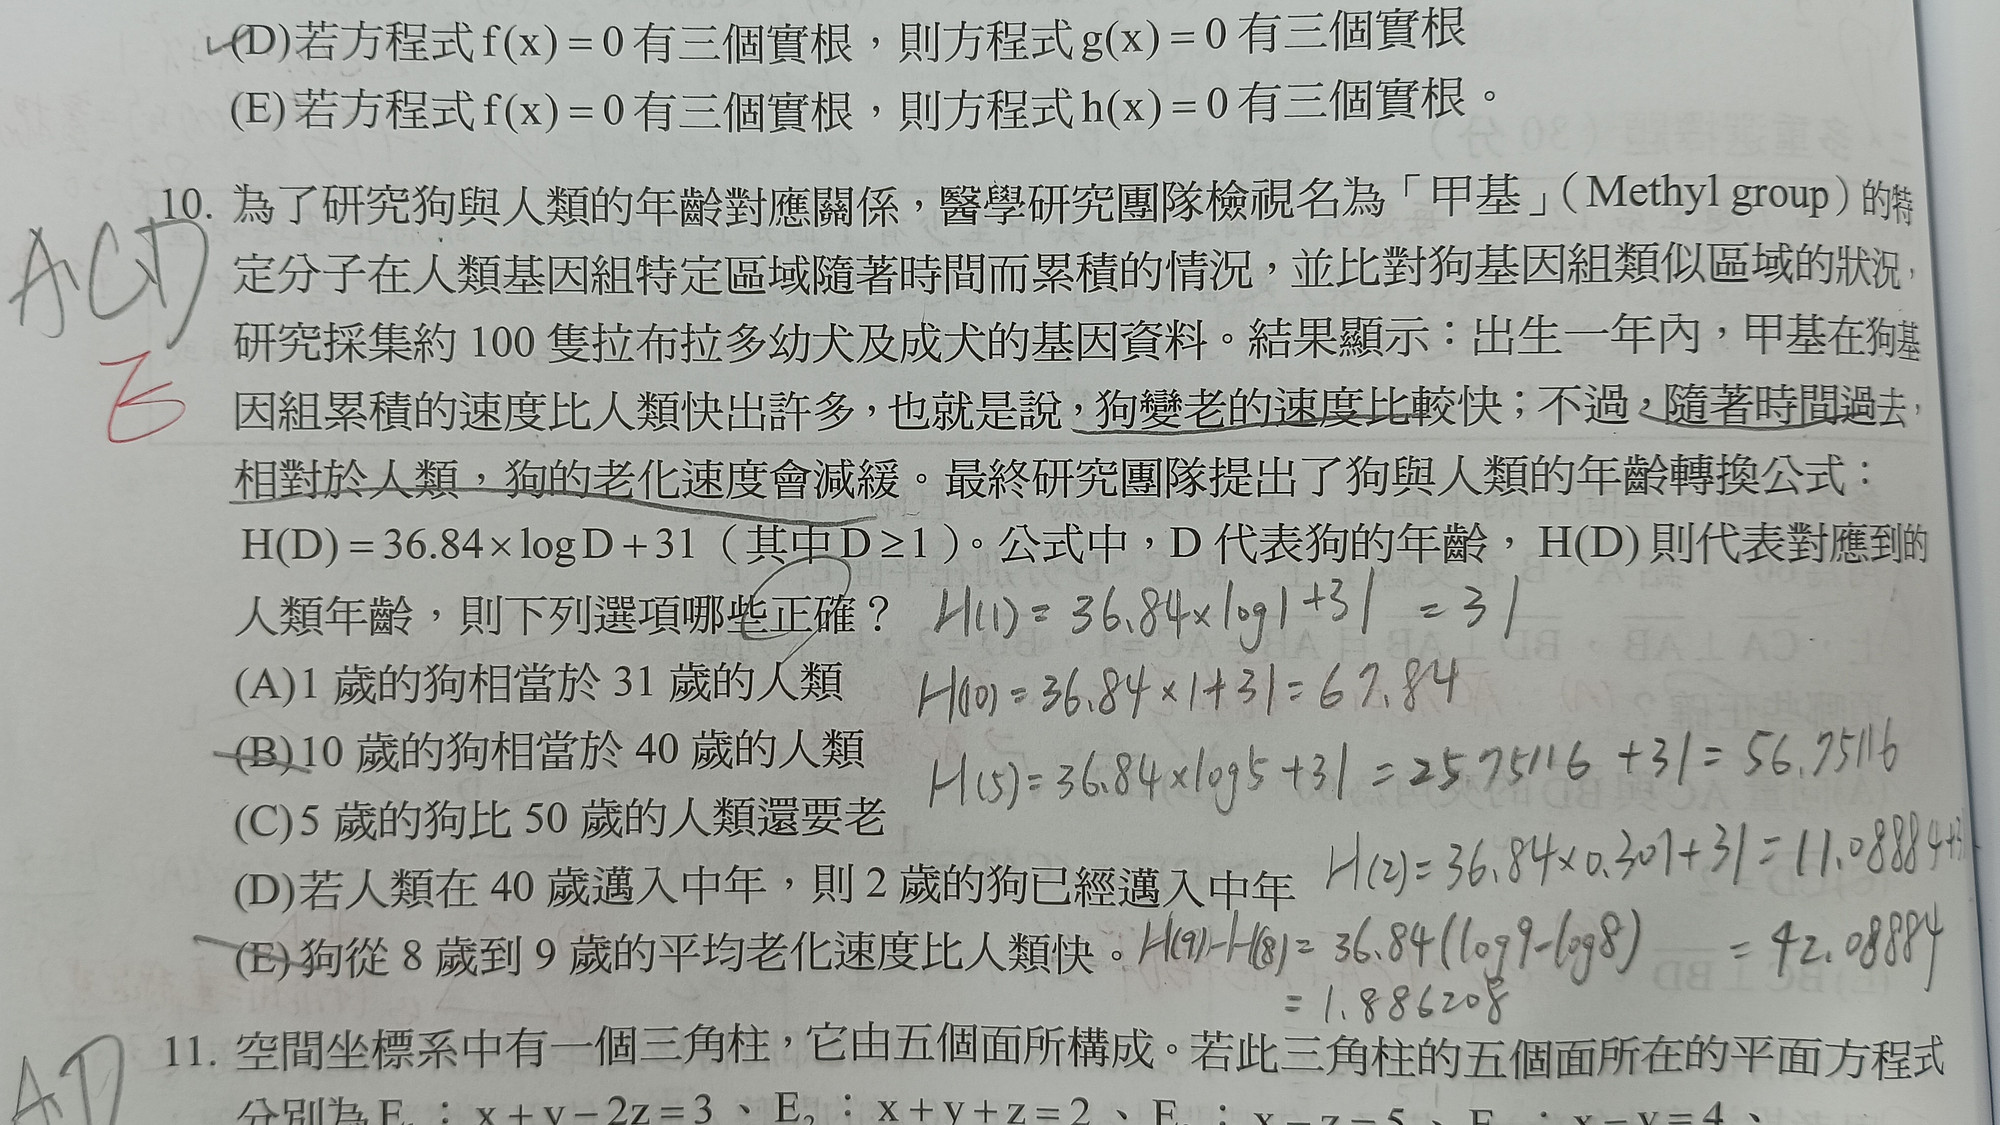 (D)若方程式f(x)=0有三個實根，則方程式g(x)=0有三個實根
(E)若方程式f(x)=0有三個實根，則方程式h(x)=0有三個實根。
10. 為了研究狗與人類的年齡對應關係，醫學研究團隊檢視名為「甲基」（Methyl group）的特
ACD
定分子在人類基因組特定區域隨著時間而累積的情況，並比對狗基因組類似區域的狀況，
研究採集約 100 隻拉布拉多幼犬及成犬的基因資料。結果顯示：出生一年內，甲基在狗基
E
因組累積的速度比人類快出許多，也就是說，狗變老的速度比較快；不過，隨著時間過去，
相對於人類，狗的老化速度會減緩。最終研究團隊提出了狗與人類的年齡轉換公式：
H(D)=36.84×logD+31（其中D≥1）。公式中，D 代表狗的年齡，H(D)則代表對應到的
人類年齡，則下列選項哪些正確？ H(1)=36.84×log1+31 =31
(A)1 歲的狗相當於 31 歲的人類 H(10)=36.84×1+31=67.84
(B)10 歲的狗相當於 40 歲的人類
H(5)=36.84×log5+31=25.75116+31=56.75116
(C)5 歲的狗比 50 歲的人類還要老
H(2)=36.84×0.301+31=11.08884+31
(D)若人類在 40 歲邁入中年，則 2 歲的狗已經邁入中年
=42.08884
(E)狗從 8 歲到 9 歲的平均老化速度比人類快。H(9)-H(8)=36.84(log9-log8)
=1.886208
11. 空間坐標系中有一個三角柱，它由五個面所構成。若此三角柱的五個面所在的平面方程式
AD
分別為E₁：x+y-2z=3、E₂：x+y+z=2、E：x-z=5、E：x-y=4、